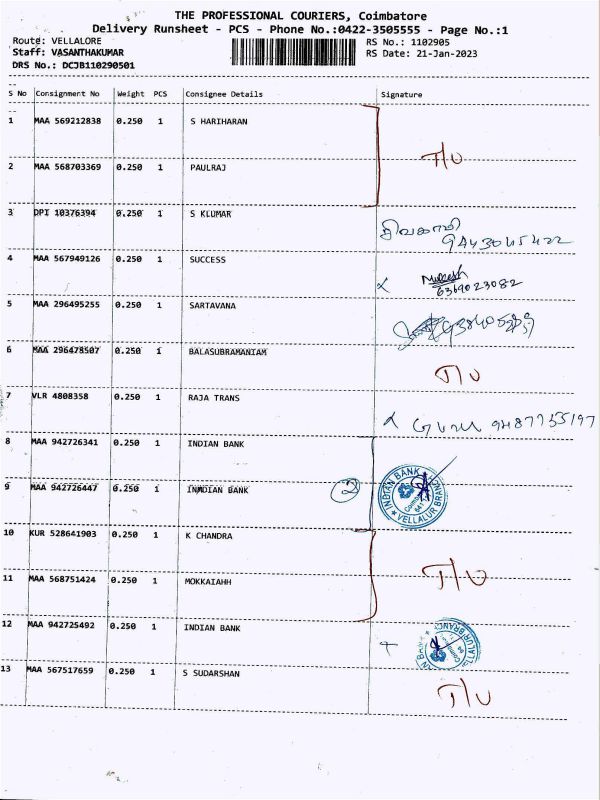 THE PROFESSIONAL COURIERS, Coimbatore
Delivery Runsheet - PCS - Phone No.:0422-3505555 - Page No.:1
Route: VELLALORE
RS No.: 1102905
Staff: VASANTHAKUMAR
RS Date: 21-Jan-2023
DRS No.: DCJB110290501
S No Consignment No Weight PCS Consignee Details Signature
1 MAA 569212838 0.250 1 S HARIHARAN
T/U
2 MAA 568703369 0.250 1 PAULRAJ
3 DPI 10376394 0.250 1 S KLUMAR
சிவகாமி
4 MAA 567949126 0.250 1 SUCCESS
6369023082
5 MAA 296495255 0.250 1 SARTAVANA
6 MAA 296478507 0.250 1 BALASUBRAMANIAM
T/U
7 VLR 4808358 0.250 1 RAJA TRANS
9487755197
8 MAA 942726341 0.250 1 INDIAN BANK
9 MAA 942726447 0.250 1 INMDIAN BANK
2
INDIAN BANK
VELLALUR BRANCH
10 KUR 528641903 0.250 1 K CHANDRA
11 MAA 568751424 0.250 1 MOKKAIAHH
T/U
12 MAA 942725492 0.250 1 INDIAN BANK
VELLALUR BRANCH
13 MAA 567517659 0.250 1 S SUDARSHAN
T/U